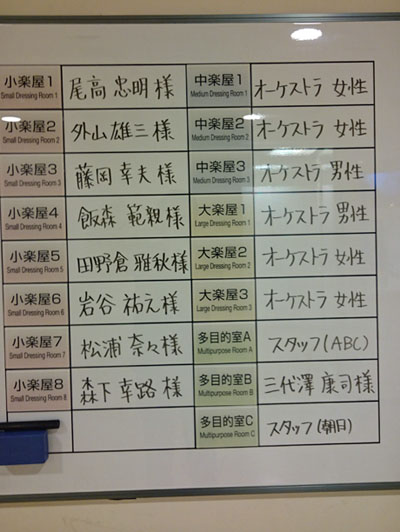 小楽屋1 尾高 忠明 様 中楽屋1 オーケストラ 女性
Small Dressing Room 1 Medium Dressing Room 1
小楽屋2 外山 雄三 様 中楽屋2 オーケストラ 女性
Small Dressing Room 2 Medium Dressing Room 2
小楽屋3 藤岡 幸夫 様 中楽屋3 オーケストラ 男性
Small Dressing Room 3 Medium Dressing Room 3
小楽屋4 飯森 範親 様 大楽屋1 オーケストラ 男性
Small Dressing Room 4 Large Dressing Room 1
小楽屋5 田野倉 雅秋 様 大楽屋2 オーケストラ 女性
Small Dressing Room 5 Large Dressing Room 2
小楽屋6 岩谷 祐之 様 大楽屋3 オーケストラ 女性
Small Dressing Room 6 Large Dressing Room 3
小楽屋7 松浦 奈々 様 多目的室A スタッフ(ABC)
Small Dressing Room 7 Multipurpose Room A
小楽屋8 森下 幸路 様 多目的室B 三代澤 康司 様
Small Dressing Room 8 Multipurpose Room B
多目的室C スタッフ(朝日)
Multipurpose Room C